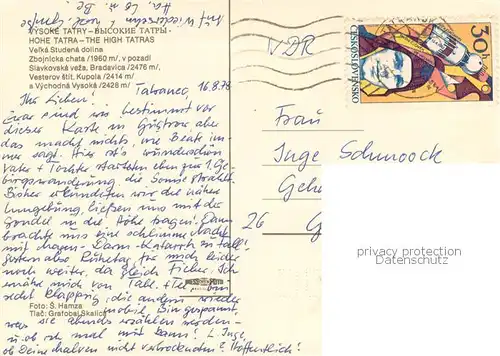 Auf Wiedersehen
VYSOKÉ TATRY–ВЫСОКИЕ ТАТРЫ-
HOHE TATRA–THE HIGH TATRAS
Veľká Studená dolina
Zbojnícka chata /1960 m/, v pozadí
Slavkovská veža, Bradavica /2476 m/,
Vesterov štít, Kupola /2414 m/
a Východná Vysoká /2428 m/
Tatranec, 16.8.78
Ihr Lieben!
Zwar sind wir bestimmt vor
dieser Karte in Güstrow aber
das macht nichts, wie Beate im-
mer sagt. Hier ist's wunderschön
Vater + Töchter starteten eben zur 1. Ge-
birgswanderung, die Sonne strahlt.
Bisher erkundeten wir die nähere
Umgebung, ließen uns mit der
Gondel in die Höhe tragen! Dann
brachte uns eine schlimme Nacht
mit Magen-Darm-Katarrh zu Fall!
Gestern also Ruhetag, für mich leider
noch weiter, da gleich Fieber. Ich
nähre mich von Tabl. + Tee – bin
recht klapprig, die andern wieder
mobil. Bin gespannt,
was Sie abends erzählen werden –
u. ob ich mal mit kann! L. Inge,
ob Deine halven nicht vertrockneten? Hoffentlich!
Foto: Š. Hamza
Tlač: Grafobal Skalica
VDR
ČESKOSLOVENSKO
30h
Frau
Inge Schmoock
26 G
privacy protection
oldthing.de